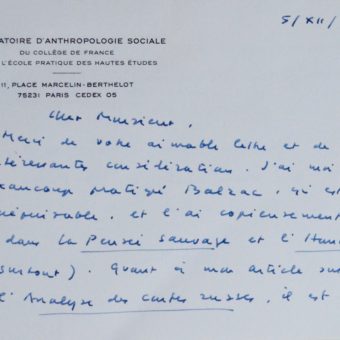 5/XII/
ATOIRE D'ANTHROPOLOGIE SOCIALE
DU COLLÈGE DE FRANCE
L'ÉCOLE PRATIQUE DES HAUTES ÉTUDES
11, PLACE MARCELIN-BERTHELOT
75231 PARIS CEDEX 05
Cher Monsieur,
Merci de votre aimable lettre et de
téressantes considérations. J'ai moi
eaucoup pratiqué Balzac, qui est
népuisable, et l'ai copieusement
dans la Pensée Sauvage et l'Hom
surtout). Quant à mon article sur
l'Analyse des contes russes, il est